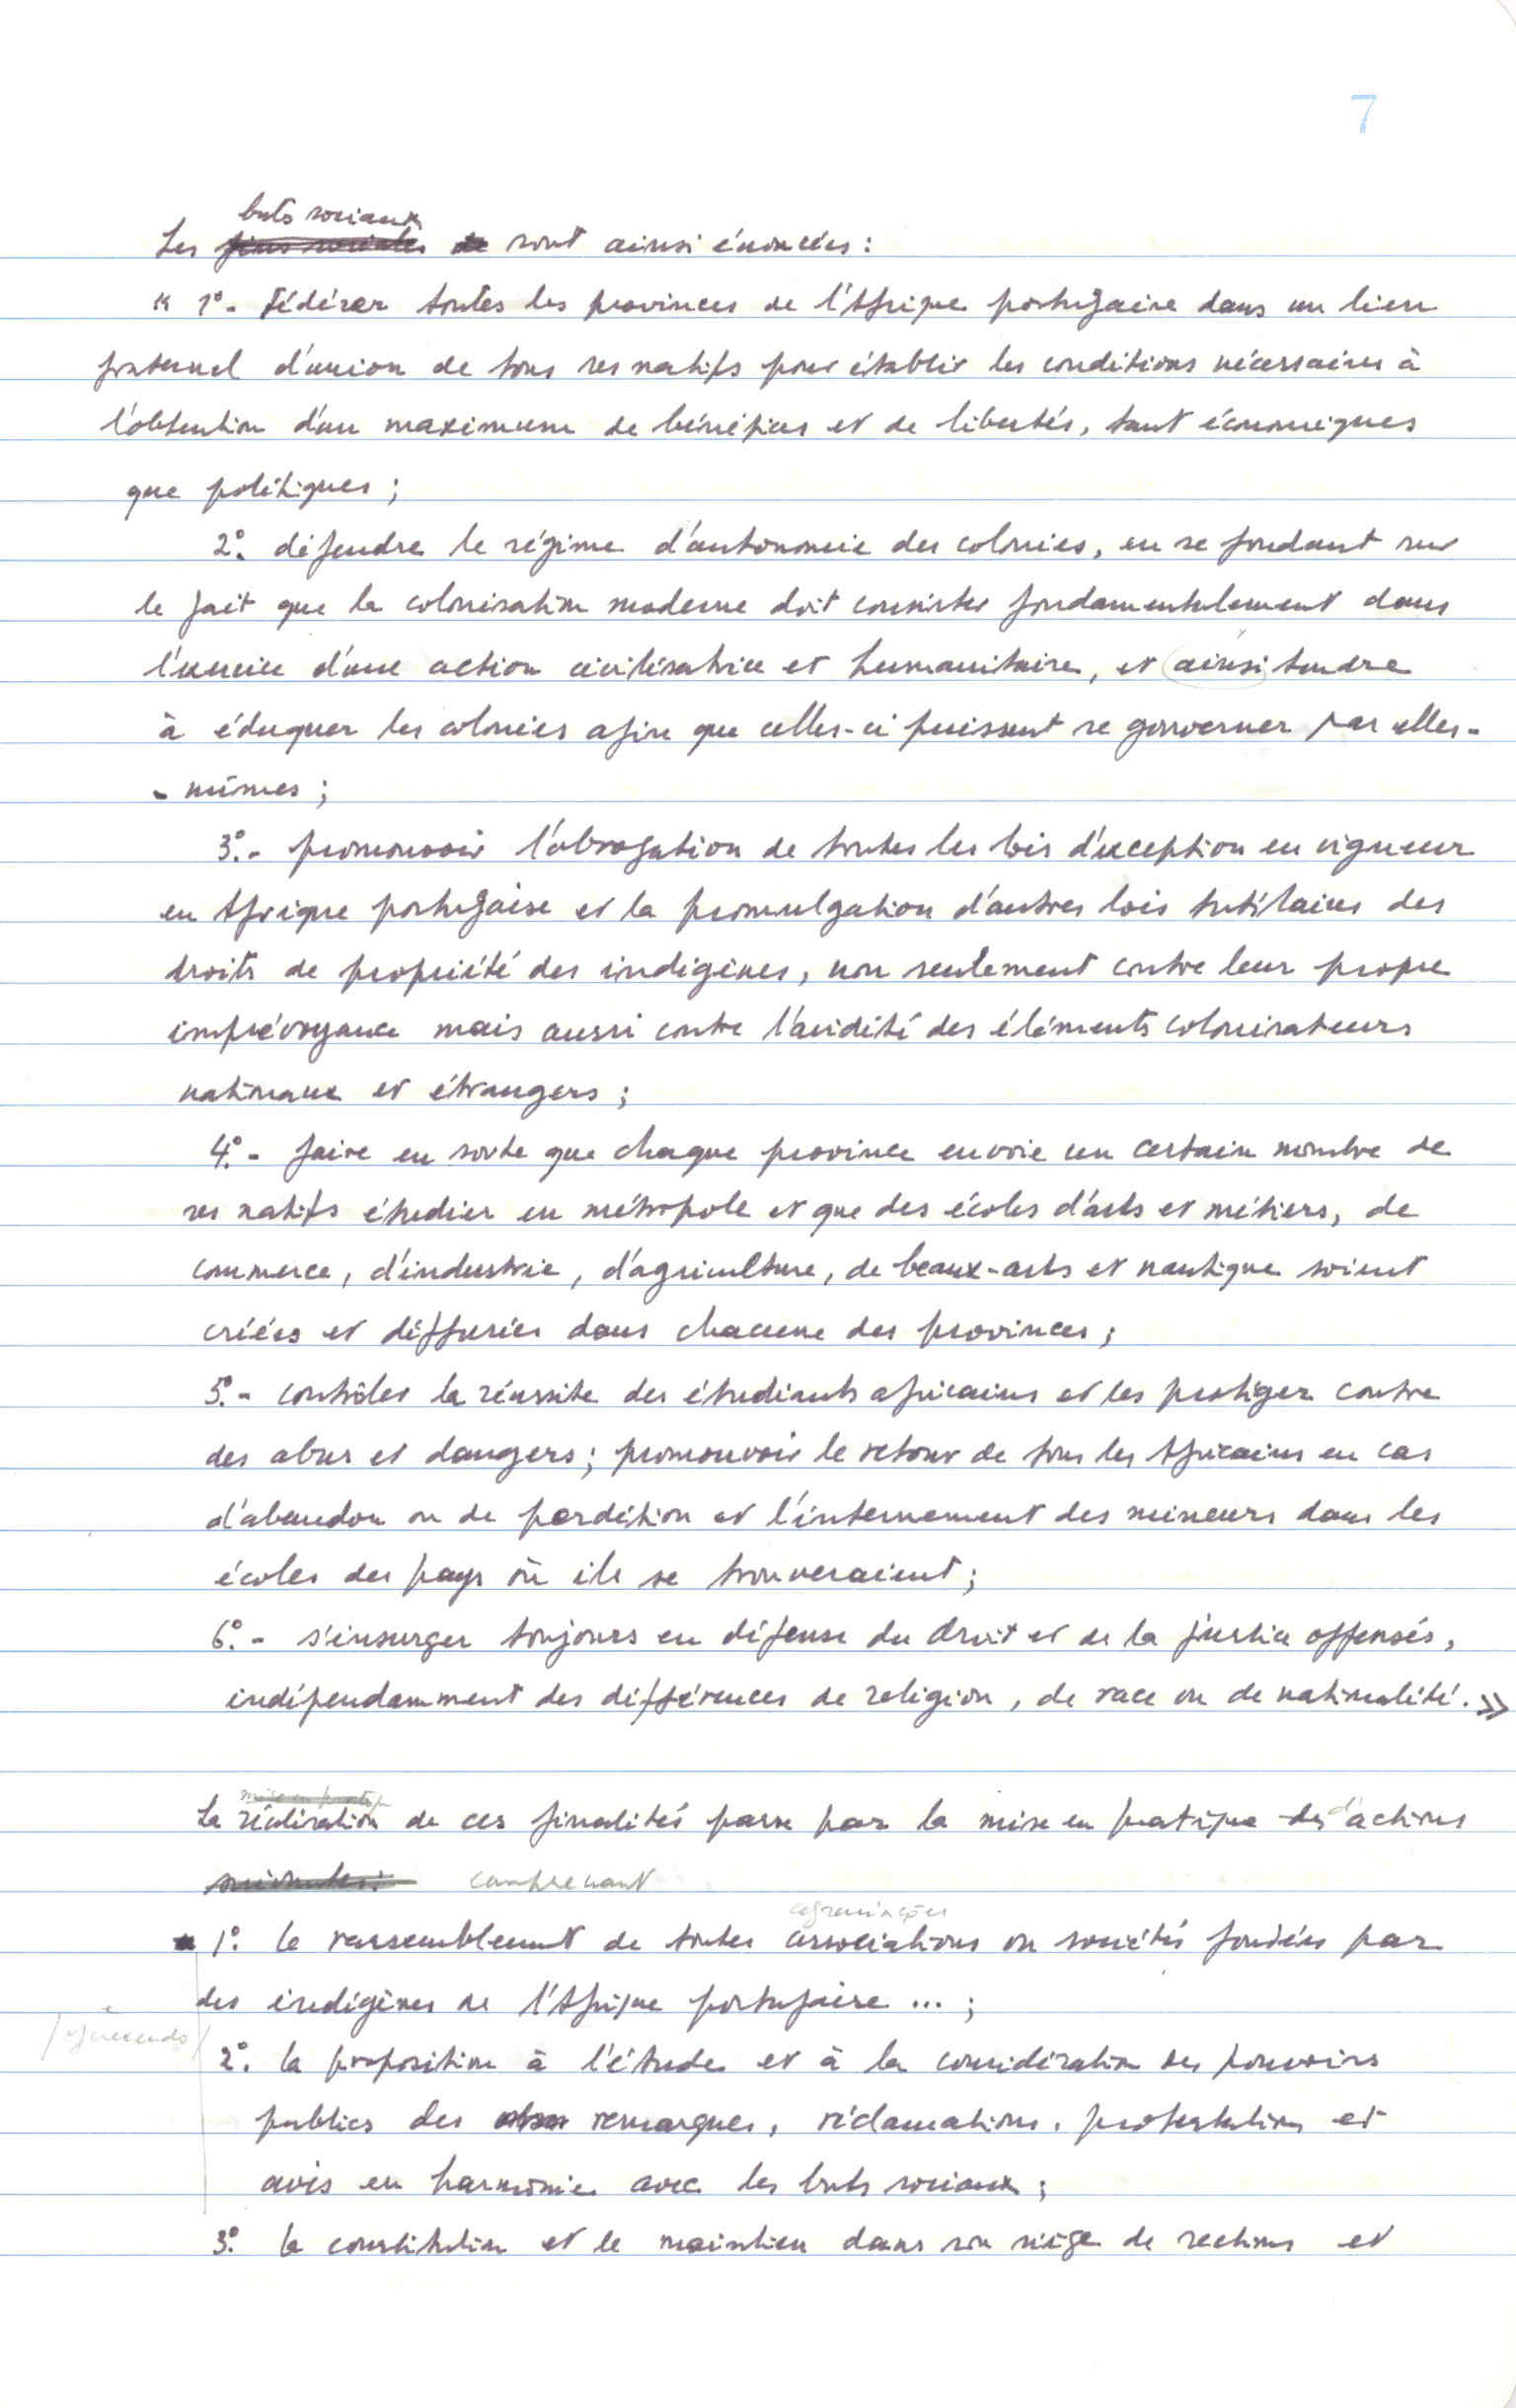 7
buts sociaux
Les fins sociales de sont ainsi énoncées :
« 1º - Fédérer toutes les provinces de l'Afrique portugaise dans un lien
fraternel d'union de tous ses natifs pour établir les conditions nécessaires à
l'obtention d'un maximum de bénéfices et de libertés, tant économiques
que politiques ;
2º. défendre le régime d'autonomie des colonies, en se fondant sur
le fait que la colonisation moderne doit consister fondamentalement dans
l'exercice d'une action civilisatrice et humanitaire, et ainsi tendre
à éduquer les colonies afin que celles-ci puissent se gouverner par elles-
- mêmes ;
3º. - promouvoir l'abrogation de toutes les lois d'exception en vigueur
en Afrique portugaise et la promulgation d'autres lois tutélaires des
droits de propriété des indigènes, non seulement contre leur propre
imprévoyance mais aussi contre l'avidité des éléments colonisateurs
nationaux et étrangers ;
4º. - faire en sorte que chaque province envoie un certain nombre de
ses natifs étudier en métropole et que des écoles d'arts et métiers, de
commerce, d'industrie, d'agriculture, de beaux-arts et nautique soient
créées et diffusées dans chacune des provinces ;
5º. - contrôler la réussite des étudiants africains et les protéger contre
des abus et dangers ; promouvoir le retour de tous les Africains en cas
d'abandon ou de perdition et l'internement des mineurs dans les
écoles des pays où ils se trouveraient ;
6º. - s'insurger toujours en défense du droit et de la justice offensés,
indépendamment des différences de religion, de race ou de nationalité. »
mise en pratique
La réalisation de ces finalités passe par la mise en pratique des d'actions
suivantes : comprenant
agremiações
1º. le rassemblement de toutes associations ou sociétés fondées par
des indigènes de l'Afrique portugaise ... ;
2º. la proposition à l'étude et à la considération des pouvoirs
publics des remarques, réclamations, protestations et
avis en harmonie avec les buts sociaux ;
3º. la constitution et le maintien dans son siège de sections et